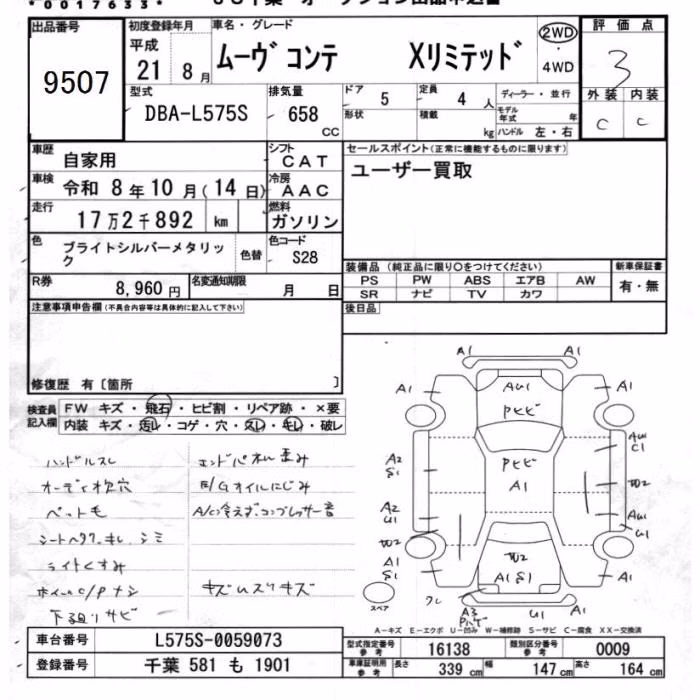 *0017633**
出品番号
9507
初度登録年月
平成
21年 8月
車名・グレード
ムーヴ コンテ Xリミテッド
2WD
4WD
評価点
3
外装 内装
C C
型式
DBA-L575S
排気量
658
CC
ドア
5
形状
定員
4人
積載
kg
ディーラー・並行
モデル年式 年
ハンドル 左・右
車歴
自家用
シフト
CAT
車検
令和 8年 10月(14日)
冷房
AAC
走行
17万2千892 km
燃料
ガソリン
色
ブライトシルバーメタリック
色替
色コード
S28
R券
8,960円
名変通知期限
月 日
セールスポイント(正常に機能するものに限ります)
ユーザー買取
装備品(純正品に限り○をつけてください)
PS PW ABS エアB AW
SR ナビ TV カワ
新車保証書
有・無
後日品
注意事項申告欄(不具合内容等は具体的に記入して下さい)
修復歴 有〔箇所 〕
検査員
記入欄
FW キズ・飛石・ヒビ割・リペア跡・×要
内装 キズ・汚レ・コゲ・穴・スレ・キレ・破レ
ハンドルスレ
オーディオ枕穴
ペット毛
シートヘタリ・キレ、シミ
ライトくすみ
ホイールC/Pナシ
下回リサビ
エンドパネル歪み
E/Gオイルにじみ
A/C冷えず、コンプレッサー音
キズ・ムスリキズ
A1 A1
A1 AU1 A1
Pヒビ
Pヒビ
A1
A2
S1
AU1
C1
W2
A2
U1
AU1
U1
W2
W2
A1
S1
A1 S1
A1
スペア
ワレ
A3
Pハゲ
U1
A1
A-キズ E-エクボ U-凹ミ W-補修跡 S-サビ C-腐食 XX-交換済
車台番号
L575S-0059073
登録番号
千葉 581 も 1901
型式指定番号
参考
16138
類別区分番号
参考
0009
車庫証明用
参考
長さ 339cm 幅 147cm 高さ 164cm